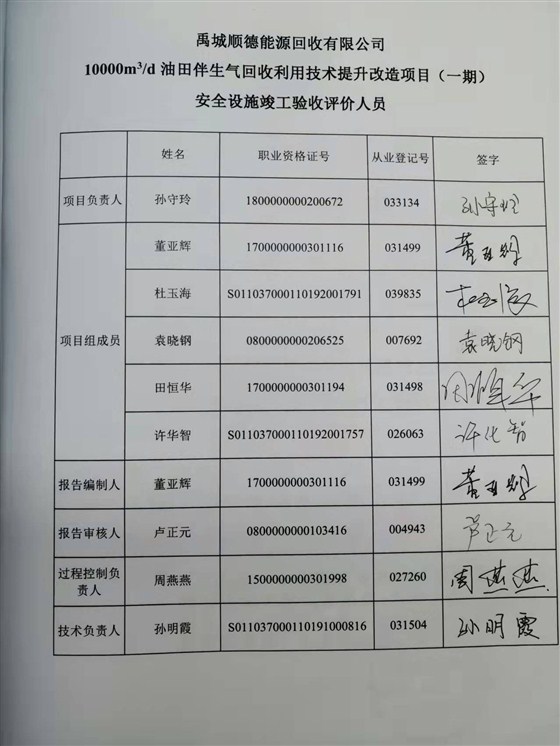 禹城顺德能源回收有限公司
10000m³/d 油田伴生气回收利用技术提升改造项目（一期）
安全设施竣工验收评价人员
姓名 职业资格证号 从业登记号 签字
项目负责人 孙守玲 1800000000200672 033134 孙守玲
项目组成员 董亚辉 1700000000301116 031499 董亚辉
杜玉海 S011037000110192001791 039835 杜玉海
袁晓钢 0800000000206525 007692 袁晓钢
田恒华 1700000000301194 031498 田恒华
许华智 S011037000110192001757 026063 许华智
报告编制人 董亚辉 1700000000301116 031499 董亚辉
报告审核人 卢正元 0800000000103416 004943 卢正元
过程控制负
责人 周燕燕 1500000000301998 027260 周燕燕
技术负责人 孙明霞 S011037000110191000816 031504 孙明霞